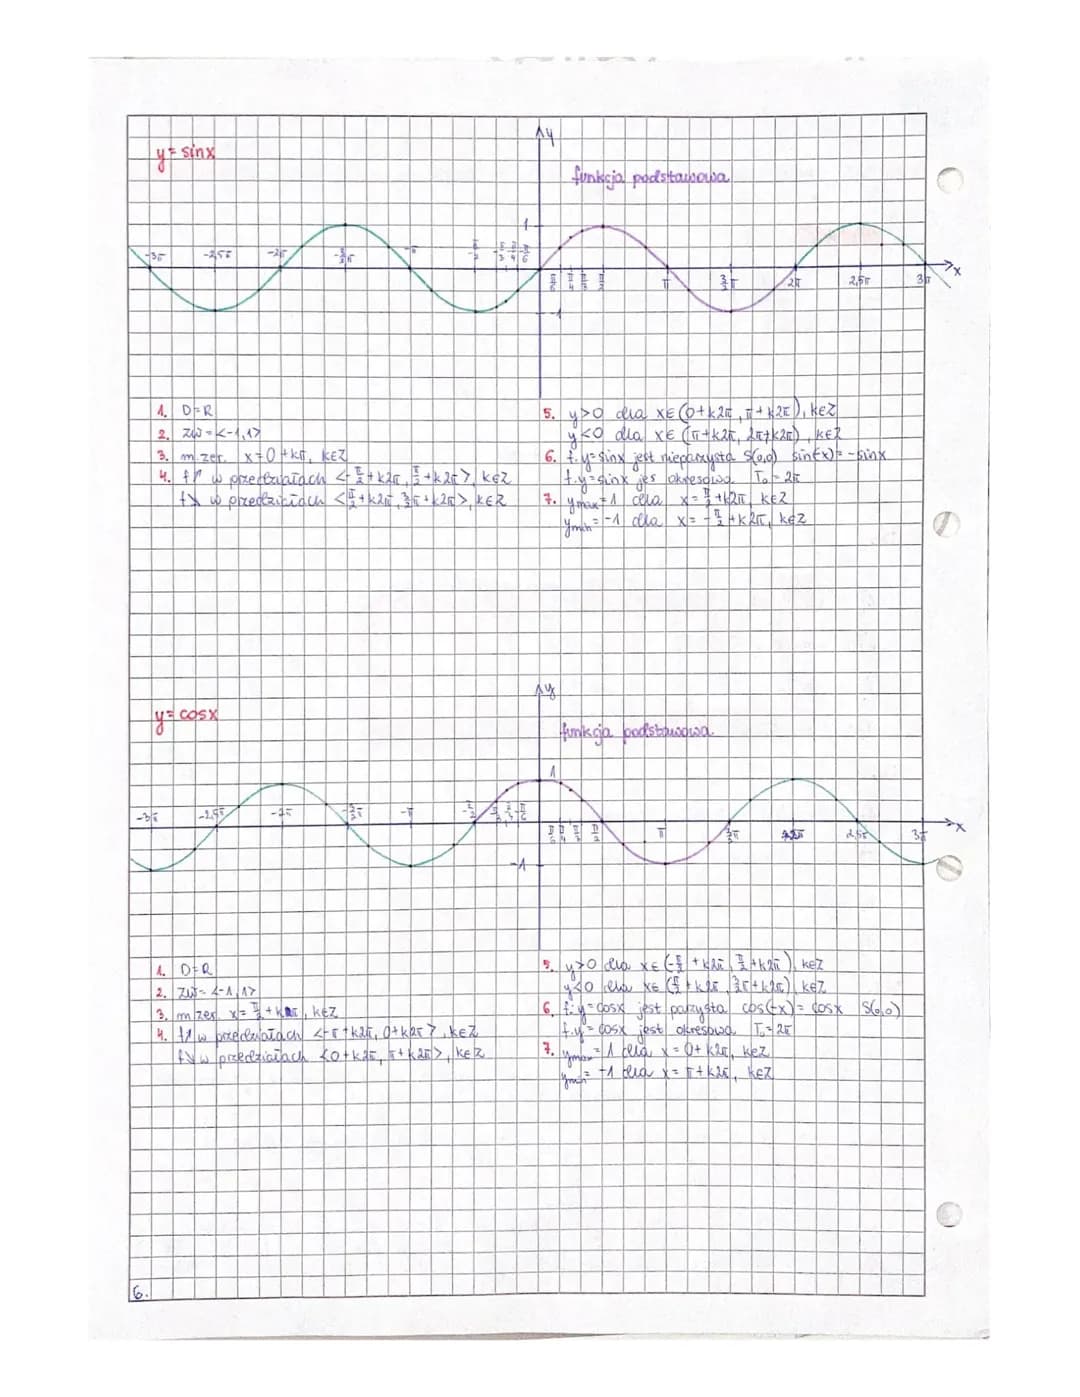 y
y = sinx
funkcja podstawowa
1
-3π -2,5π -2π -3/2π -π -π/2 -π/3 -π/4 -π/6
x
π/6 π/4 π/3 π/2 π 3/2π 2π 2,5π 3π
-1
1. D=R
2. ZW=<-1,1>
3. m.zer. x=0+kπ, k∈Z
4. f↗ w przedziałach <-π/2+k2π, π/2+k2π>, k∈Z
f↘ w przedziałach <π/2+k2π, 3/2π+k2π>, k∈Z
5. y>0 dla x∈(0+k2π, π+k2π), k∈Z
y<0 dla x∈(π+k2π, 2π+k2π), k∈Z
6. f.y=sinx jest nieparzysta S(0,0) sin(-x)=-sinx
f.y=sinx jes okresowa T₀=2π
7. ymax=1 dla x=π/2+k2π, k∈Z
ymin=-1 dla x=-π/2+k2π, k∈Z
y
y = cosx
funkcja podstawowa
1
-3π -2,5π -2π -3/2π -π -π/2 -π/3 -π/6
x
π/6 π/4 π/3 π/2 π 3/2π 2π 2,5π 3π
-1
1. D=R
2. ZW=<-1,1>
3. m.zer. x=π/2+kπ, k∈Z
4. f↗ w przedziałach <-π+k2π, 0+k2π>, k∈Z
f↘ w przedziałach <0+k2π, π+k2π>, k∈Z
5. y>0 dla x∈(-π/2+k2π, π/2+k2π), k∈Z
y<0 dla x∈(π/2+k2π, 3/2π+k2π), k∈Z
6. f.y=cosx jest parzysta cos(-x)=cosx S(0,0)
f.y=cosx jest okresowa T₀=2π
7. ymax=1 dla x=0+k2π, k∈Z
ymin=-1 dla x=π+k2π, k∈Z
6.